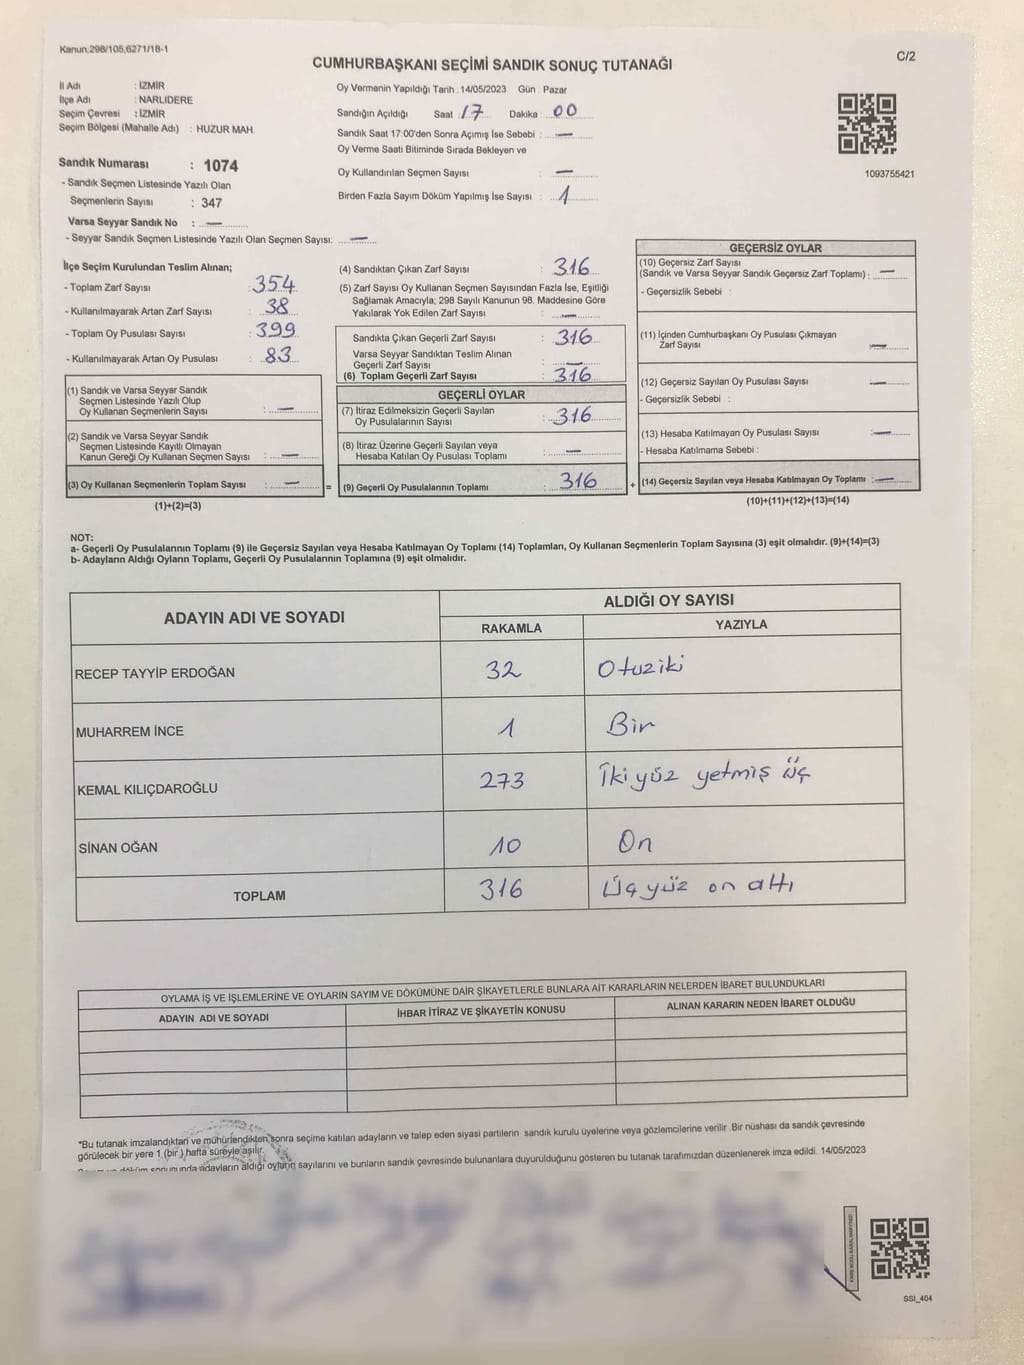 Kanun,298/105,6271/18-1
C/2
CUMHURBAŞKANI SEÇİMİ SANDIK SONUÇ TUTANAĞI
İl Adı : İZMİR
İlçe Adı : NARLIDERE
Seçim Çevresi : İZMİR
Seçim Bölgesi (Mahalle Adı) : HUZUR MAH.
Sandık Numarası : 1074
- Sandık Seçmen Listesinde Yazılı Olan
Seçmenlerin Sayısı : 347
Varsa Seyyar Sandık No : —
- Seyyar Sandık Seçmen Listesinde Yazılı Olan Seçmen Sayısı: —
Oy Vermenin Yapıldığı Tarih : 14/05/2023 Gün : Pazar
Sandığın Açıldığı Saat : 17 Dakika : 00
Sandık Saat 17:00'den Sonra Açımış İse Sebebi : —
Oy Verme Saati Bitiminde Sırada Bekleyen ve
Oy Kullandırılan Seçmen Sayısı : —
Birden Fazla Sayım Döküm Yapılmış İse Sayısı : 1
1093755421
İlçe Seçim Kurulundan Teslim Alınan;
- Toplam Zarf Sayısı : 354
- Kullanılmayarak Artan Zarf Sayısı : 38
- Toplam Oy Pusulası Sayısı : 399
- Kullanılmayarak Artan Oy Pusulası : 83
(1) Sandık ve Varsa Seyyar Sandık
Seçmen Listesinde Yazılı Olup
Oy Kullanan Seçmenlerin Sayısı : —
(2) Sandık ve Varsa Seyyar Sandık
Seçmen Listesinde Kayıtlı Olmayan
Kanun Gereği Oy Kullanan Seçmen Sayısı : —
(3) Oy Kullanan Seçmenlerin Toplam Sayısı : — =
(1)+(2)=(3)
(4) Sandıktan Çıkan Zarf Sayısı : 316
(5) Zarf Sayısı Oy Kullanan Seçmen Sayısından Fazla İse, Eşitliği
Sağlamak Amacıyla; 298 Sayılı Kanunun 98. Maddesine Göre
Yakılarak Yok Edilen Zarf Sayısı : —
Sandıkta Çıkan Geçerli Zarf Sayısı : 316
Varsa Seyyar Sandıktan Teslim Alınan
Geçerli Zarf Sayısı : —
(6) Toplam Geçerli Zarf Sayısı : 316
GEÇERLİ OYLAR
(7) İtiraz Edilmeksizin Geçerli Sayılan
Oy Pusulalarının Sayısı : 316
(8) İtiraz Üzerine Geçerli Sayılan veya
Hesaba Katılan Oy Pusulası Toplamı : —
(9) Geçerli Oy Pusulalarının Toplamı : 316 +
GEÇERSİZ OYLAR
(10) Geçersiz Zarf Sayısı
(Sandık ve Varsa Seyyar Sandık Geçersiz Zarf Toplamı) : —
- Geçersizlik Sebebi :
(11) İçinden Cumhurbaşkanı Oy Pusulası Çıkmayan
Zarf Sayısı : —
(12) Geçersiz Sayılan Oy Pusulası Sayısı : —
- Geçersizlik Sebebi :
(13) Hesaba Katılmayan Oy Pusulası Sayısı : —
- Hesaba Katılmama Sebebi :
(14) Geçersiz Sayılan veya Hesaba Katılmayan Oy Toplamı : —
(10)+(11)+(12)+(13)=(14)
NOT:
a- Geçerli Oy Pusulalarının Toplamı (9) ile Geçersiz Sayılan veya Hesaba Katılmayan Oy Toplamı (14) Toplamları, Oy Kullanan Seçmenlerin Toplam Sayısına (3) eşit olmalıdır. (9)+(14)=(3)
b- Adayların Aldığı Oyların Toplamı, Geçerli Oy Pusulalarının Toplamına (9) eşit olmalıdır.
ADAYIN ADI VE SOYADI ALDIĞI OY SAYISI
RAKAMLA YAZIYLA
RECEP TAYYİP ERDOĞAN 32 Otuziki
MUHARREM İNCE 1 Bir
KEMAL KILIÇDAROĞLU 273 İkiyüz yetmiş üç
SİNAN OĞAN 10 On
TOPLAM 316 Üçyüz on altı
OYLAMA İŞ VE İŞLEMLERİNE VE OYLARIN SAYIM VE DÖKÜMÜNE DAİR ŞİKAYETLERLE BUNLARA AİT KARARLARIN NELERDEN İBARET BULUNDUKLARI
ADAYIN ADI VE SOYADI İHBAR İTİRAZ VE ŞİKAYETİN KONUSU ALINAN KARARIN NEDEN İBARET OLDUĞU
*Bu tutanak imzalandıktan ve mühürlendikten sonra seçime katılan adayların ve talep eden siyasi partilerin sandık kurulu üyelerine veya gözlemcilerine verilir .Bir nüshası da sandık çevresinde
görülecek bir yere 1 (bir ) hafta süreyle asılır.
döküm sonununda adayların aldığı oyların sayılarını ve bunların sandık çevresinde bulunanlara duyurulduğunu gösteren bu tutanak tarafımızdan düzenlenerek imza edildi. 14/05/2023
SSI_404